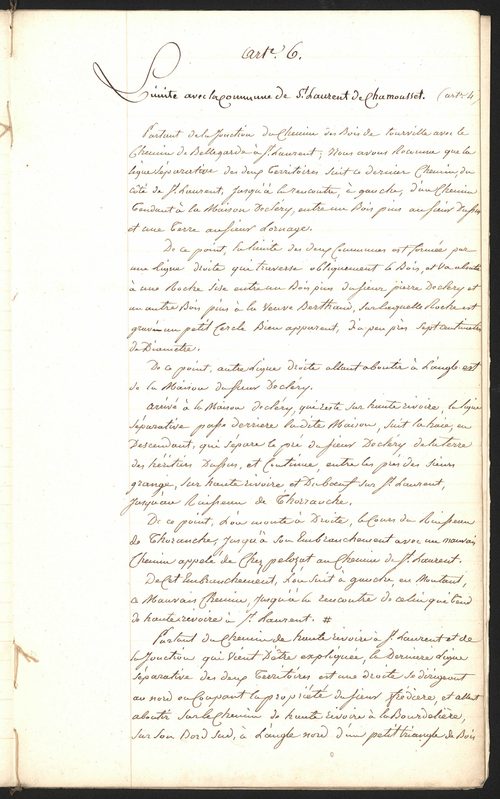 art.e 6.
Limite avec la commune de St. Laurent de Chamousset. (art.e 4)
Partant de la Jonction du Chemin des Bois de Courville avec le
Chemin de Bellegarde à St. Laurent; Nous avons Reconnu que la
ligne Séparative des deux Territoires Suit ce dernier Chemin, du
côté de St. Laurent, Jusqu'à la rencontre, à gauche, d'un Chemin
Tendant à la Maison Docléry, entre un Bois pins au Sieur Dussus
et une Terre au Sieur Lornage.
De ce point, la limite des deux Communes est formée par
une ligne Droite que traverse obliquement le Bois, et va aboutir
à une Roche Sise entre un Bois pins du Sieur pierre Docléry et
un autre Bois pins à la Veuve Berthaud, Sur laquelle Roche est
gravé un petit Cercle Bien apparent, d'à peu près Sept centimètres
de Diamètre.
De ce point, autre ligne Droite allant aboutir à l'angle est
de la Maison du Sieur Docléry.
Arrivé à la Maison Docléry, qui reste Sur haute rivoire, la ligne
Séparative passe derrière la dite Maison, Suit la haie, en
Descendant, qui Sépare le pré du Sieur Docléry de la terre
des héritiers Dussus, et Continue, entre les prés des Sieurs
grange, Sur haute rivoire et Duboeuf Sur St. Laurent,
Jusqu'au Ruisseau de Thoranche.
De ce point, L'on monte à Droite, le Cours du Ruisseau
de Thoranche, Jusqu'à Son Embranchement avec un mauvais
Chemin appelé de Chez pelozat au Chemin de St. Laurent.
De Cet Embranchement, L'on Suit à gauche en Montant,
ce Mauvais Chemin, Jusqu'à la rencontre de celui que tend
de haute rivoire à St. Laurent. #
Partant du Chemin de haute rivoire à St. Laurent et de
la Jonction qui Vient d'être expliquée, la Dernière ligne
Séparative des deux Territoires est une droite Se dirigeant
au nord en Coupant la propriété du Sieur frédière et allant
aboutir Sur le Chemin de haute rivoire à la Bourdelière,
Sur Son Bord Sud, à L'angle nord d'un petit triangle de Bois